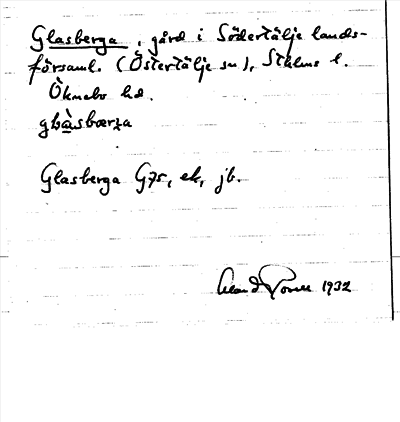 Glasberga, gård i Södertälje lands-
församl. (Östertälje sn), Sthlms l.
Öknebo hd.
gɫàsbærɡa
Glasberga G75, ek, jb.
1932